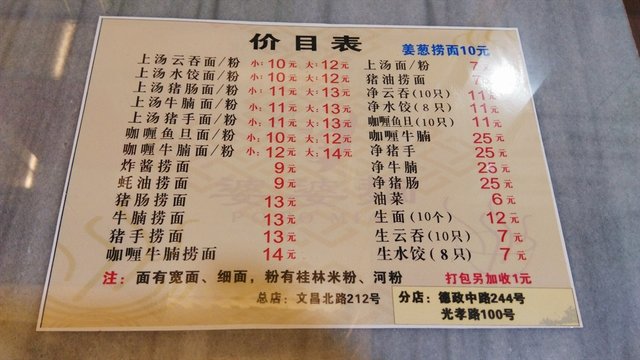 价目表
姜葱捞面10元
上汤云吞面/粉 小:10元 大:12元
上汤水饺面/粉 小:10元 大:12元
上汤猪肠面/粉 小:11元 大:13元
上汤牛腩面/粉 小:11元 大:13元
上汤猪手面/粉 小:11元 大:13元
咖喱鱼旦面/粉 小:10元 大:12元
咖喱牛腩面/粉 小:12元 大:14元
炸酱捞面 9元
蚝油捞面 9元
猪肠捞面 13元
牛腩捞面 13元
猪手捞面 13元
咖喱牛腩捞面 14元
上汤面/粉 7元
猪油捞面 7元
净云吞(10只) 11元
净水饺(8只) 11元
咖喱鱼旦(10只) 11元
咖喱牛腩 25元
净猪手 25元
净牛腩 25元
净猪肠 25元
油菜 6元
生面(10个) 12元
生云吞(10只) 7元
生水饺(8只) 7元
注：面有宽面、细面，粉有桂林米粉、河粉
打包另加收1元
总店：文昌北路212号
分店：德政中路244号
光孝路100号